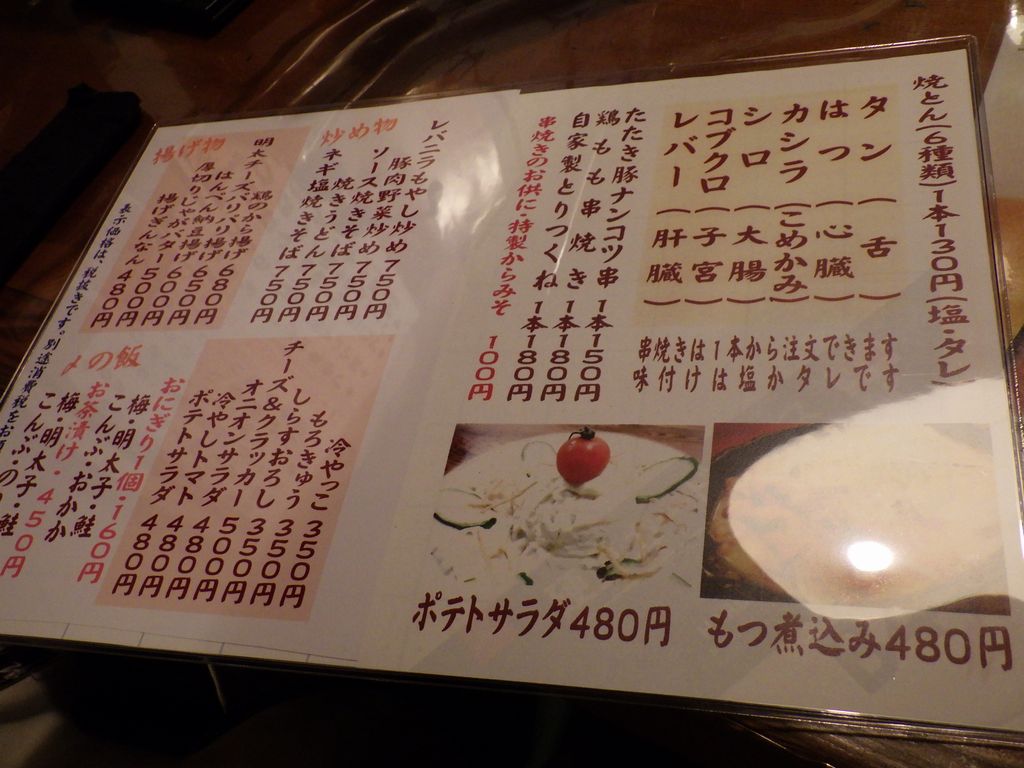 焼とん(6種類)1本130円(塩・タレ)
タン(舌)
はつ(心臓)
カシラ(こめかみ)
シロ(大腸)
コブクロ(子宮)
レバー(肝臓)
串焼きは1本から注文できます
味付けは塩かタレです
たたき豚ナンコツ串 1本150円
鶏もも串焼き 1本180円
自家製とりつくね 1本180円
串焼きのお供に・特製からみそ 100円
ポテトサラダ480円
もつ煮込み480円
炒め物
レバニラもやし炒め 750円
豚肉野菜炒め 750円
ソース焼きそば 750円
焼きうどん 750円
ネギ塩焼きそば 750円
揚げ物
鶏のから揚げ 680円
明太チーズパリパリ揚げ 650円
はんぺん納豆揚げ 600円
厚切りじゃがバター 500円
揚げぎんなん 480円
冷やっこ 350円
もろきゅう 350円
しらすおろし 350円
チーズ&クラッカー 500円
オニオンサラダ 480円
冷やしトマト 480円
ポテトサラダ 480円
〆の飯
おにぎり1個・160円
梅・明太子・鮭
こんぶ・おかか
お茶漬け・450円
梅・明太子
こんぶ・のり・鮭
表示価格は、税抜きです。別途消費税をお